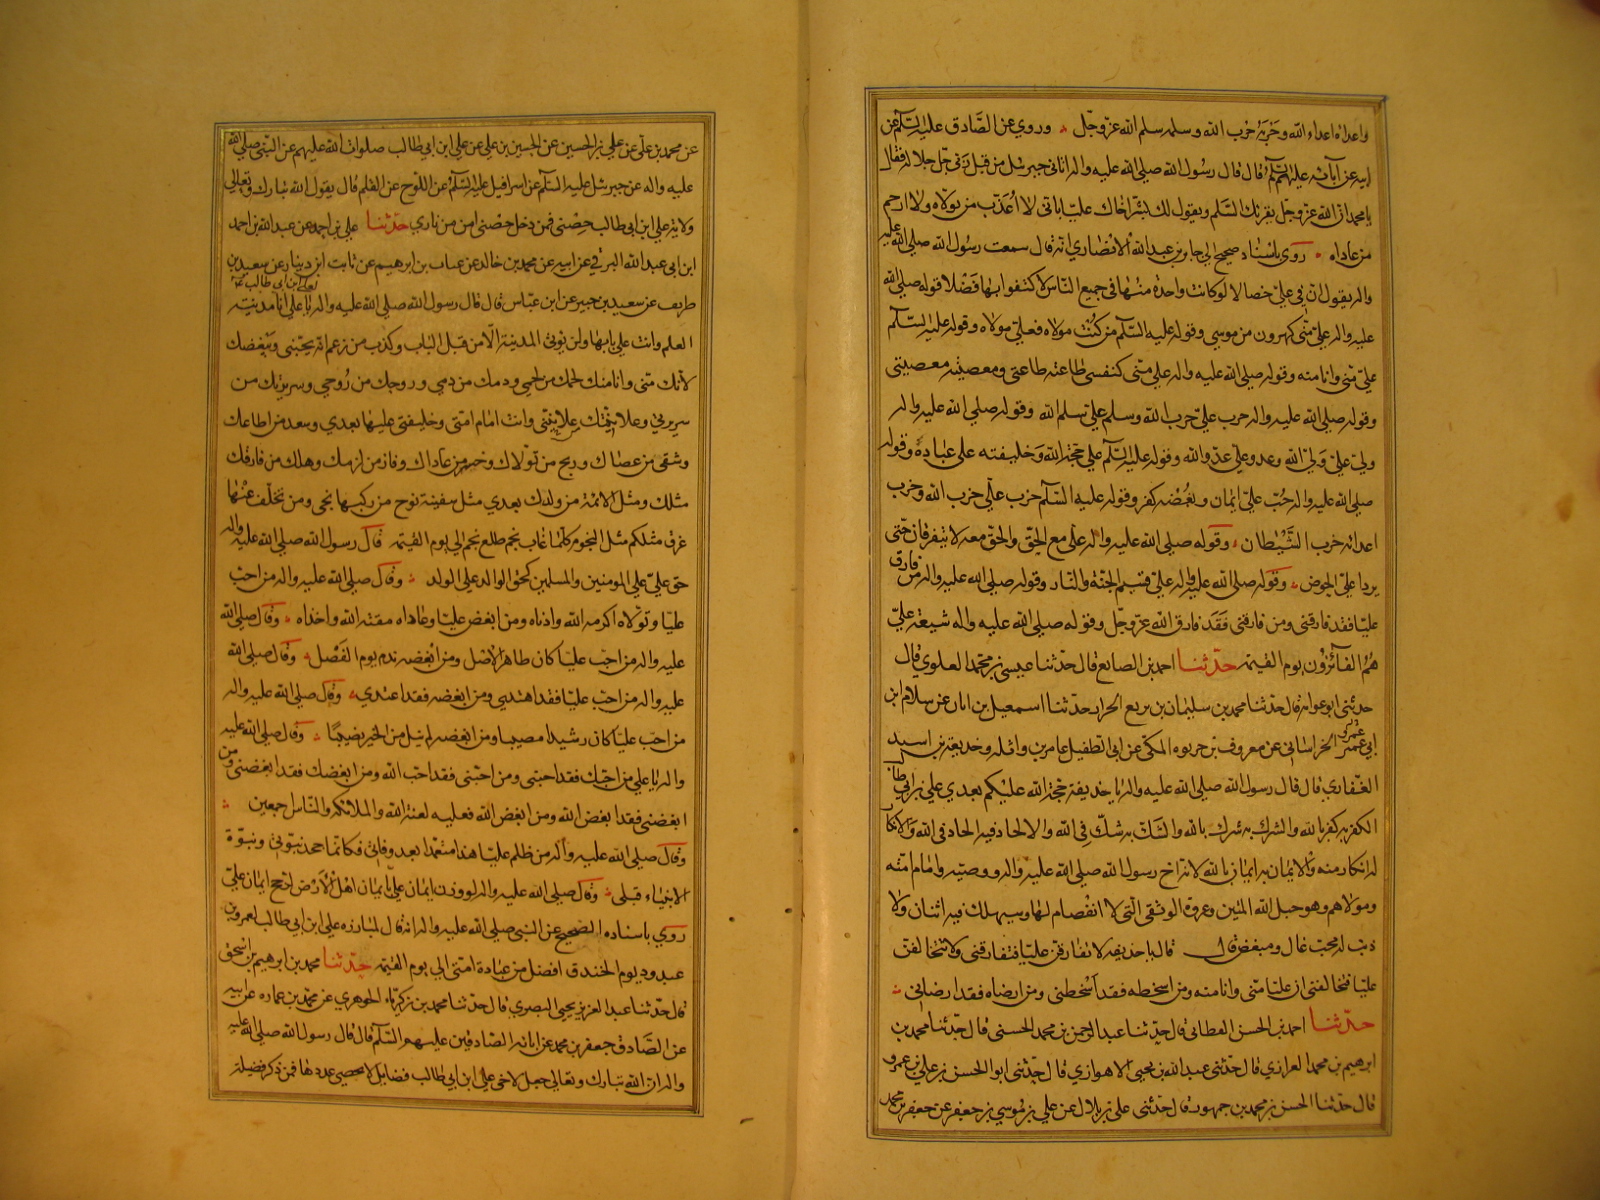 واعداؤه اعداء الله وحربه حرب الله وسلمه سلم الله عز وجل وروي عن الصادق عليه السلم عن
ابيه عن آبائه عليهم السلم قال قال رسول الله صلى الله عليه واله اتاني جبرئيل من قبل ربي جل جلاله فقال
يا محمد ان الله عز وجل يقرئك السلم ويقول لك بشر اخاك عليا باني لا اعذب من تولاه ولا ارحم
من عاداه روي باسناد صحيح الي جابر بن عبد الله الانصاري انه قال سمعت رسول الله صلى الله عليه
واله يقول ان في علي خصالا لو كانت واحدة منها في جميع الناس لاكتفوا بها فضلا قوله صلى الله
عليه واله علي مني كهرون من موسي وقوله عليه السلم من كنت مولاه فعلي مولاه وقوله عليه السلم
علي مني وانا منه وقوله صلى الله عليه واله علي مني كنفسي طاعته طاعتي ومعصيته معصيتي
وقوله صلى الله عليه واله حرب علي حرب الله وسلم علي سلم الله وقوله صلى الله عليه واله
ولي علي ولي الله وعدو علي عدو الله وقوله عليه السلم علي حجة الله وخليفته علي عباده وقوله
صلى الله عليه واله حب علي ايمان وبغضه كفر وقوله عليه السلم حزب علي حزب الله وحزب
اعدائه حزب الشيطان وقوله صلى الله عليه واله علي مع الحق والحق معه لا يتفرقان حتى
يردا علي الحوض وقوله صلى الله عليه واله علي قسيم الجنة والنار وقوله صلى الله عليه واله من فارق
عليا فقد فارقني ومن فارقني فقد فارق الله عز وجل وقوله صلى الله عليه واله شيعة علي
هم الفائزون يوم القيمة حدثنا احمد بن الصايع قال حدثنا عيسى بن محمد العلوي قال
حدثني ابو عوانه قال حدثنا محمد بن سليمان بن بزيع الحزاز حدثنا اسمعيل بن ابان عن سلام ابن
ابي عمرة الخراساني عن معروف بن خربوه المكي عن ابي الطفيل عامر بن واثله وحذيفة بن اسيد
الغفاري قال قال رسول الله صلى الله عليه واله يا حذيفة حجة الله عليكم بعدي علي بن ابي طالب
الكفر به كفر بالله والشرك به شرك بالله والشك به شك في الله والالحاد فيه الحاد في الله والانكار
له انكار منه والايمان به ايمان بالله لانه اخ رسول الله صلى الله عليه واله ووصيه وامام امته
ومولاهم وهو حبل الله المتين وعروة الوثقي التي لا انفصام لها وسيهلك فيه اثنان ولا
ذنب له محب غال ومبغض قال يا حذيفة لا تفارقن عليا فتفارقني ولا تخالفن
عليا فتخالفني ان عليا مني وانا منه ومن اسخطه فقد اسخطني ومن ارضاه فقد ارضاني
حدثنا احمد بن الحسن القطان قال حدثنا عبد الرحمن بن محمد الحسني قال حدثنا محمد بن
ابرهيم بن محمد الفزازي قال حدثني عبد الله بن يحيى الاهوازي قال حدثني ابو الحسن بن علي بن عمرو
قال حدثنا الحسن بن محمد بن جمهور قال حدثني علي بن بلال عن علي بن موسي بن جعفر عن جعفر بن محمد
عن محمد بن علي عن علي بن الحسين عن الحسين بن علي عن علي ابن ابي طالب صلوات الله عليهم عن النبي صلى الله
عليه واله عن جبرئيل عليه السلم عن اسرافيل عليه السلم عن اللوح عن القلم قال يقول الله تبارك وتعالي
ولاية علي ابن ابي طالب حصني فمن دخل حصني امن من ناري حدثنا علي بن احمد عن عبد الله بن احمد
ابن ابي عبد الله البرقي عن ابيه عن محمد بن خالد عن غياب بن ابرهيم عن ثابت ابن دينار عن سعيد بن
لعلي ابن ابي طالب ع
طريف عن سعيد بن جبير عن ابن عباس قال قال رسول الله صلى الله عليه واله يا علي انا مدينة
العلم وانت علي بابها ولن تؤتي المدينة الا من قبل الباب وكذب من زعم انه يحبني ويبغضك
لانك مني وانا منك لحمك من لحمي ودمك من دمي وروحك من روحي وسريرتك من
سريرتي وعلانيتك علانيتي وانت امام امتي وخليفتي عليها بعدي وسعد من اطاعك
وشقي من عصاك وربح من تولاك وخسر من عاداك وفاز من لزمك وهلك من فارقك
مثلك ومثل الائمة من ولدك بعدي مثل سفينة نوح من ركبها نجي ومن تخلف عنها
غرق مثلكم مثل النجوم كلما غاب نجم طلع نجم الي يوم القيمة قال رسول الله صلى الله عليه واله
حق علي علي المومنين والمسلمين كحق الوالد علي الولد وقال صلى الله عليه واله من احب
عليا وتولاه اكرمه الله وادناه ومن ابغض عليا وعاداه مقته الله واخذاه وقال صلى الله
عليه واله من احب عليا كان طاهر الاصل ومن ابغضه ندم يوم الفصل وقال صلى الله
عليه واله من احب عليا فقد اهتدي ومن ابغضه فقد اعتدي وقال صلى الله عليه واله
من احب عليا كان رشيدا مصيبا ومن ابغضه لم ينل من الخير نصيبا وقال صلى الله عليه
واله يا علي من احبك فقد احبني ومن احبني فقد احب الله ومن ابغضك فقد ابغضني ومن
ابغضني فقد ابغض الله ومن ابغض الله فعليه لعنة الله والملائكة والناس اجمعين
وقال صلى الله عليه واله من ظلم عليا هذا متعمدا بعد وفاتي فكانما احمد نبوتي ونبوة
الانبياء قبلي وقال صلى الله عليه واله لو وزن ايمان علي بايمان اهل الارض ارجح ايمان علي
روي باسناده الصحيح عن النبي صلى الله عليه واله انه قال لمبارزه علي ابن ابي طالب لعمرو بن
عبد ود يوم الخندق افضل من عبادة امتي الي يوم القيمة حدثنا محمد بن ابرهيم بن اسحق
قال حدثنا عبد العزيز يحيى البصري قال حدثنا محمد بن زكرياء الجوهري عن محمد بن عماره عن ابيه
عن الصادق جعفر بن محمد عن ابائه الصادقين عليهم السلم قال قال رسول الله صلى الله عليه
واله ان الله تبارك وتعالي جعل لاخي علي ابن ابي طالب فضايل لا يحصي عددها فمن ذكر فضيلة